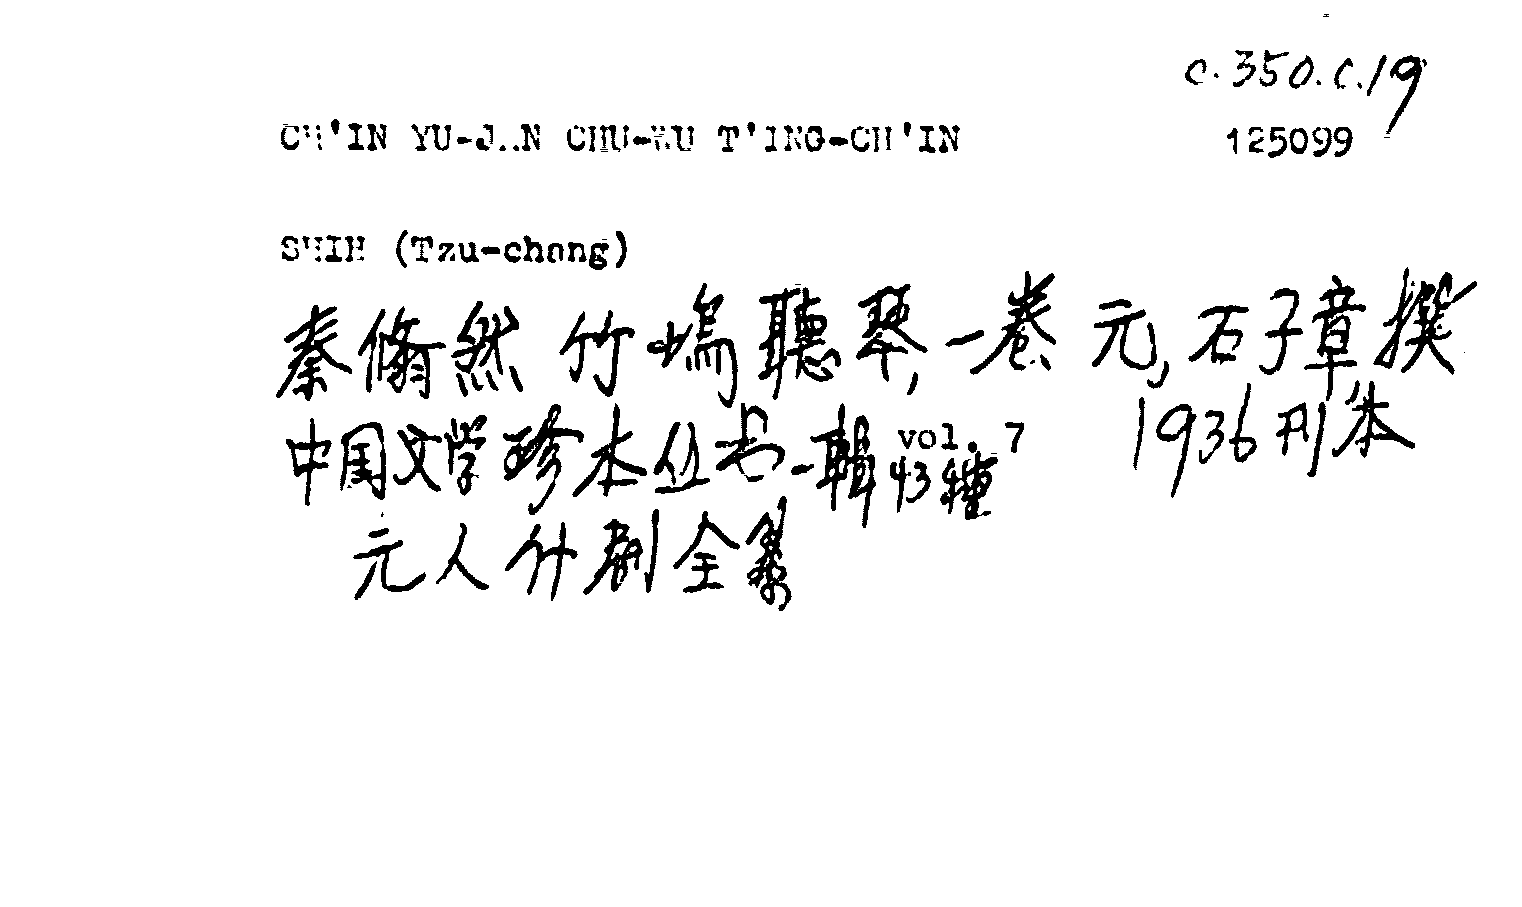 c.350.c.19
CH'IN YU-JAN CHU-WU T'ING-CH'IN 125099
SHIH (Tzu-chang)
秦翛然竹塢聽琴,一卷 元,石子章撰
中国文学珍本丛书一輯 vol. 7 43種 1936刊本
元人什劇全集